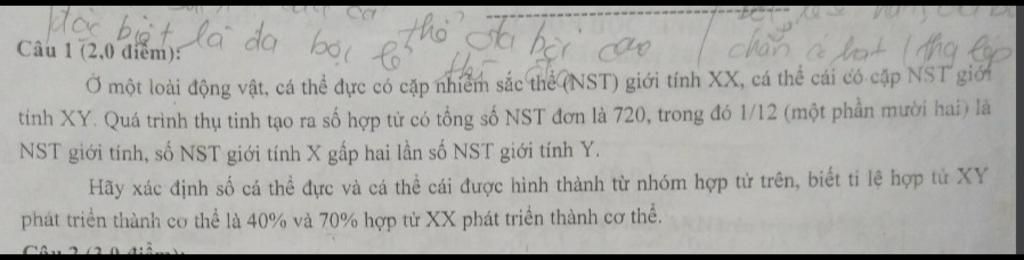 đặc biệt là đa bội lẻ thỏ đa bội cao
Câu 1 (2,0 điểm):
Ở một loài động vật, cá thể đực có cặp nhiễm sắc thể (NST) giới tính XX, cá thể cái có cặp NST giới
tính XY. Quá trình thụ tinh tạo ra số hợp tử có tổng số NST đơn là 720, trong đó 1/12 (một phần mười hai) là
NST giới tính, số NST giới tính X gấp hai lần số NST giới tính Y.
Hãy xác định số cá thể đực và cá thể cái được hình thành từ nhóm hợp tử trên, biết tỉ lệ hợp tử XY
phát triển thành cơ thể là 40% và 70% hợp tử XX phát triển thành cơ thể.